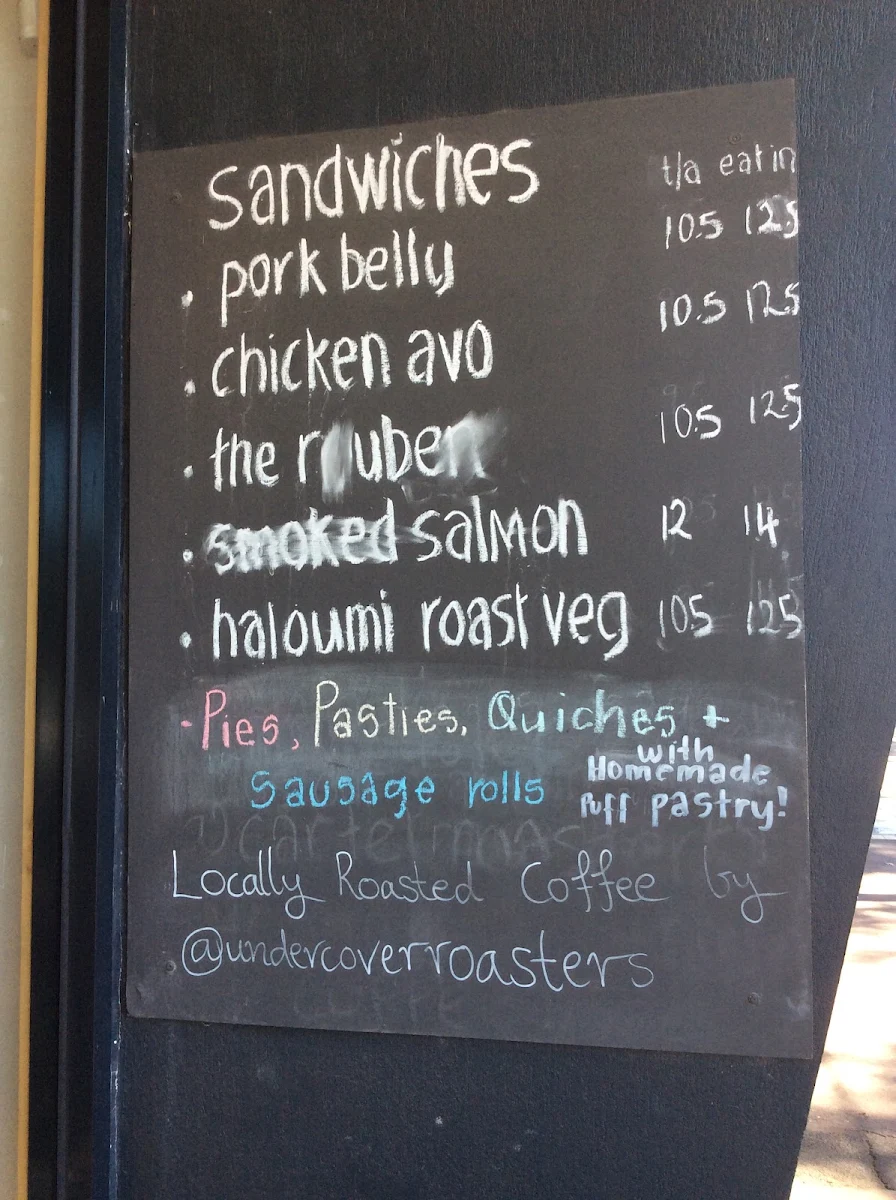 sandwiches t/a eat in
• pork belly 10.5 12.5
• chicken avo 10.5 12.5
• the 10.5 12.5
• smoked salmon 12 14
• haloumi roast veg 10.5 12.5
- Pies, Pasties, Quiches +
Sausage rolls with
Homemade
Puff pastry!
Locally Roasted Coffee by
@undercoverroasters